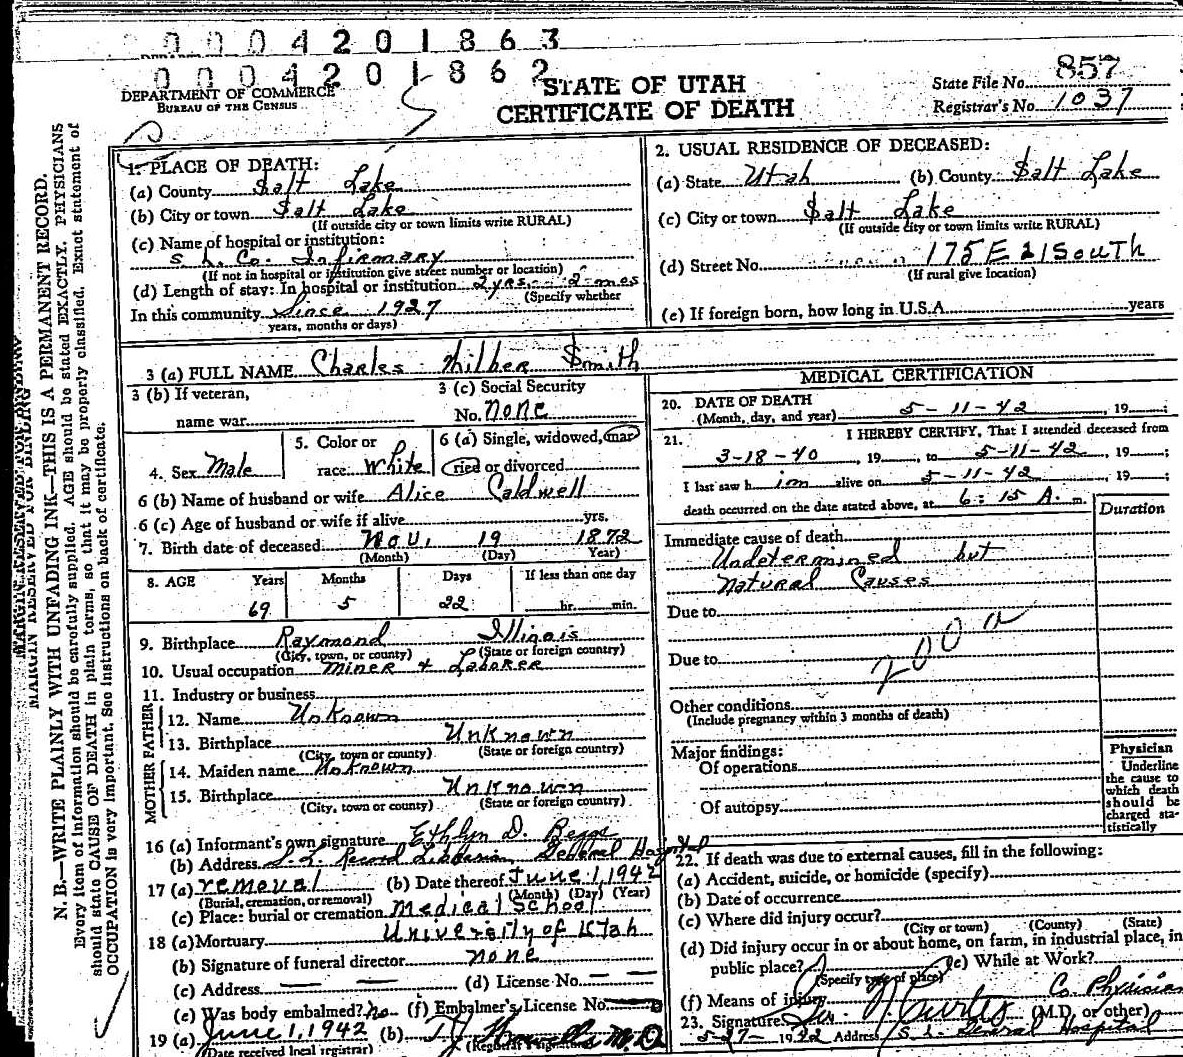 0 0 0 4 2 0 1 8 6 3
0 0 0 4 2 0 1 8 6 2
DEPARTMENT OF COMMERCE
BUREAU OF THE CENSUS
STATE OF UTAH
CERTIFICATE OF DEATH
State File No. 857
Registrar's No. 1037
MARGIN RESERVED FOR BINDING
N. B.—WRITE PLAINLY WITH UNFADING INK—THIS IS A PERMANENT RECORD.
Every item of information should be carefully supplied. AGE should be stated EXACTLY. PHYSICIANS
should state CAUSE OF DEATH in plain terms, so that it may be properly classified. Exact statement of
OCCUPATION is very important. See instructions on back of certificate.
1. PLACE OF DEATH:
(a) County Salt Lake
(b) City or town Salt Lake
(If outside city or town limits write RURAL)
(c) Name of hospital or institution:
S L. Co. Infirmary
(If not in hospital or institution give street number or location)
(d) Length of stay: In hospital or institution 2 yrs. 2 mos
(Specify whether
In this community Since 1927
years, months or days)
2. USUAL RESIDENCE OF DECEASED:
(a) State Utah (b) County Salt Lake
(c) City or town Salt Lake
(If outside city or town limits write RURAL)
(d) Street No. 175 E 21 South
(If rural give location)
(e) If foreign born, how long in U.S.A. years
3 (a) FULL NAME Charles Wilber Smith
3 (b) If veteran,
name war
3 (c) Social Security
No. none
4. Sex Male
5. Color or
race White
6 (a) Single, widowed, mar
ried or divorced
6 (b) Name of husband or wife Alice Caldwell
6 (c) Age of husband or wife if alive yrs.
7. Birth date of deceased Nov. 19 1872
(Month) (Day) Year)
8. AGE Years Months Days If less than one day
69 5 22 hr. min.
9. Birthplace Raymond Illinois
(City, town, or county) (State or foreign country)
10. Usual occupation Miner + Laborer
11. Industry or business
FATHER
12. Name Unknown
13. Birthplace Unknown
(City, town or county) (State or foreign country)
MOTHER
14. Maiden name Unknown
15. Birthplace Unknown
(City, town or county) (State or foreign country)
16 (a) Informant's own signature Ethlyn D. Beggs
(b) Address S. L. Record Librarian General Hospital
17 (a) removal (b) Date thereof June 1, 1942
(Burial, cremation, or removal) (Month) (Day) (Year)
(c) Place: burial or cremation Medical School
18 (a) Mortuary University of Utah
(b) Signature of funeral director none
(c) Address (d) License No.
(e) Was body embalmed? no (f) Embalmer's License No.
19 (a) June 1, 1942 (b) M.D.
(Date received local registrar)
MEDICAL CERTIFICATION
20. DATE OF DEATH
(Month, day, and year) 5-11-42, 19
21. I HEREBY CERTIFY, That I attended deceased from
3-18-40, 19, to 5-11-42, 19;
I last saw h im alive on 5-11-42, 19;
death occurred on the date stated above, at 6:15 A. m.
Duration
Immediate cause of death
Undetermined but
Natural Causes
Due to
Due to
200 a
Other conditions
(Include pregnancy within 3 months of death)
Major findings:
Of operations
Of autopsy
Physician
Underline
the cause to
which death
should be
charged sta-
tistically
22. If death was due to external causes, fill in the following:
(a) Accident, suicide, or homicide (specify)
(b) Date of occurrence
(c) Where did injury occur?
(City or town) (County) (State)
(d) Did injury occur in or about home, on farm, in industrial place, in
public place? (e) While at Work?
(Specify type of place)
(f) Means of injury Co. Physician
23. Signature (M.D. or other)
5-27-1942 Address S. L. General Hospital